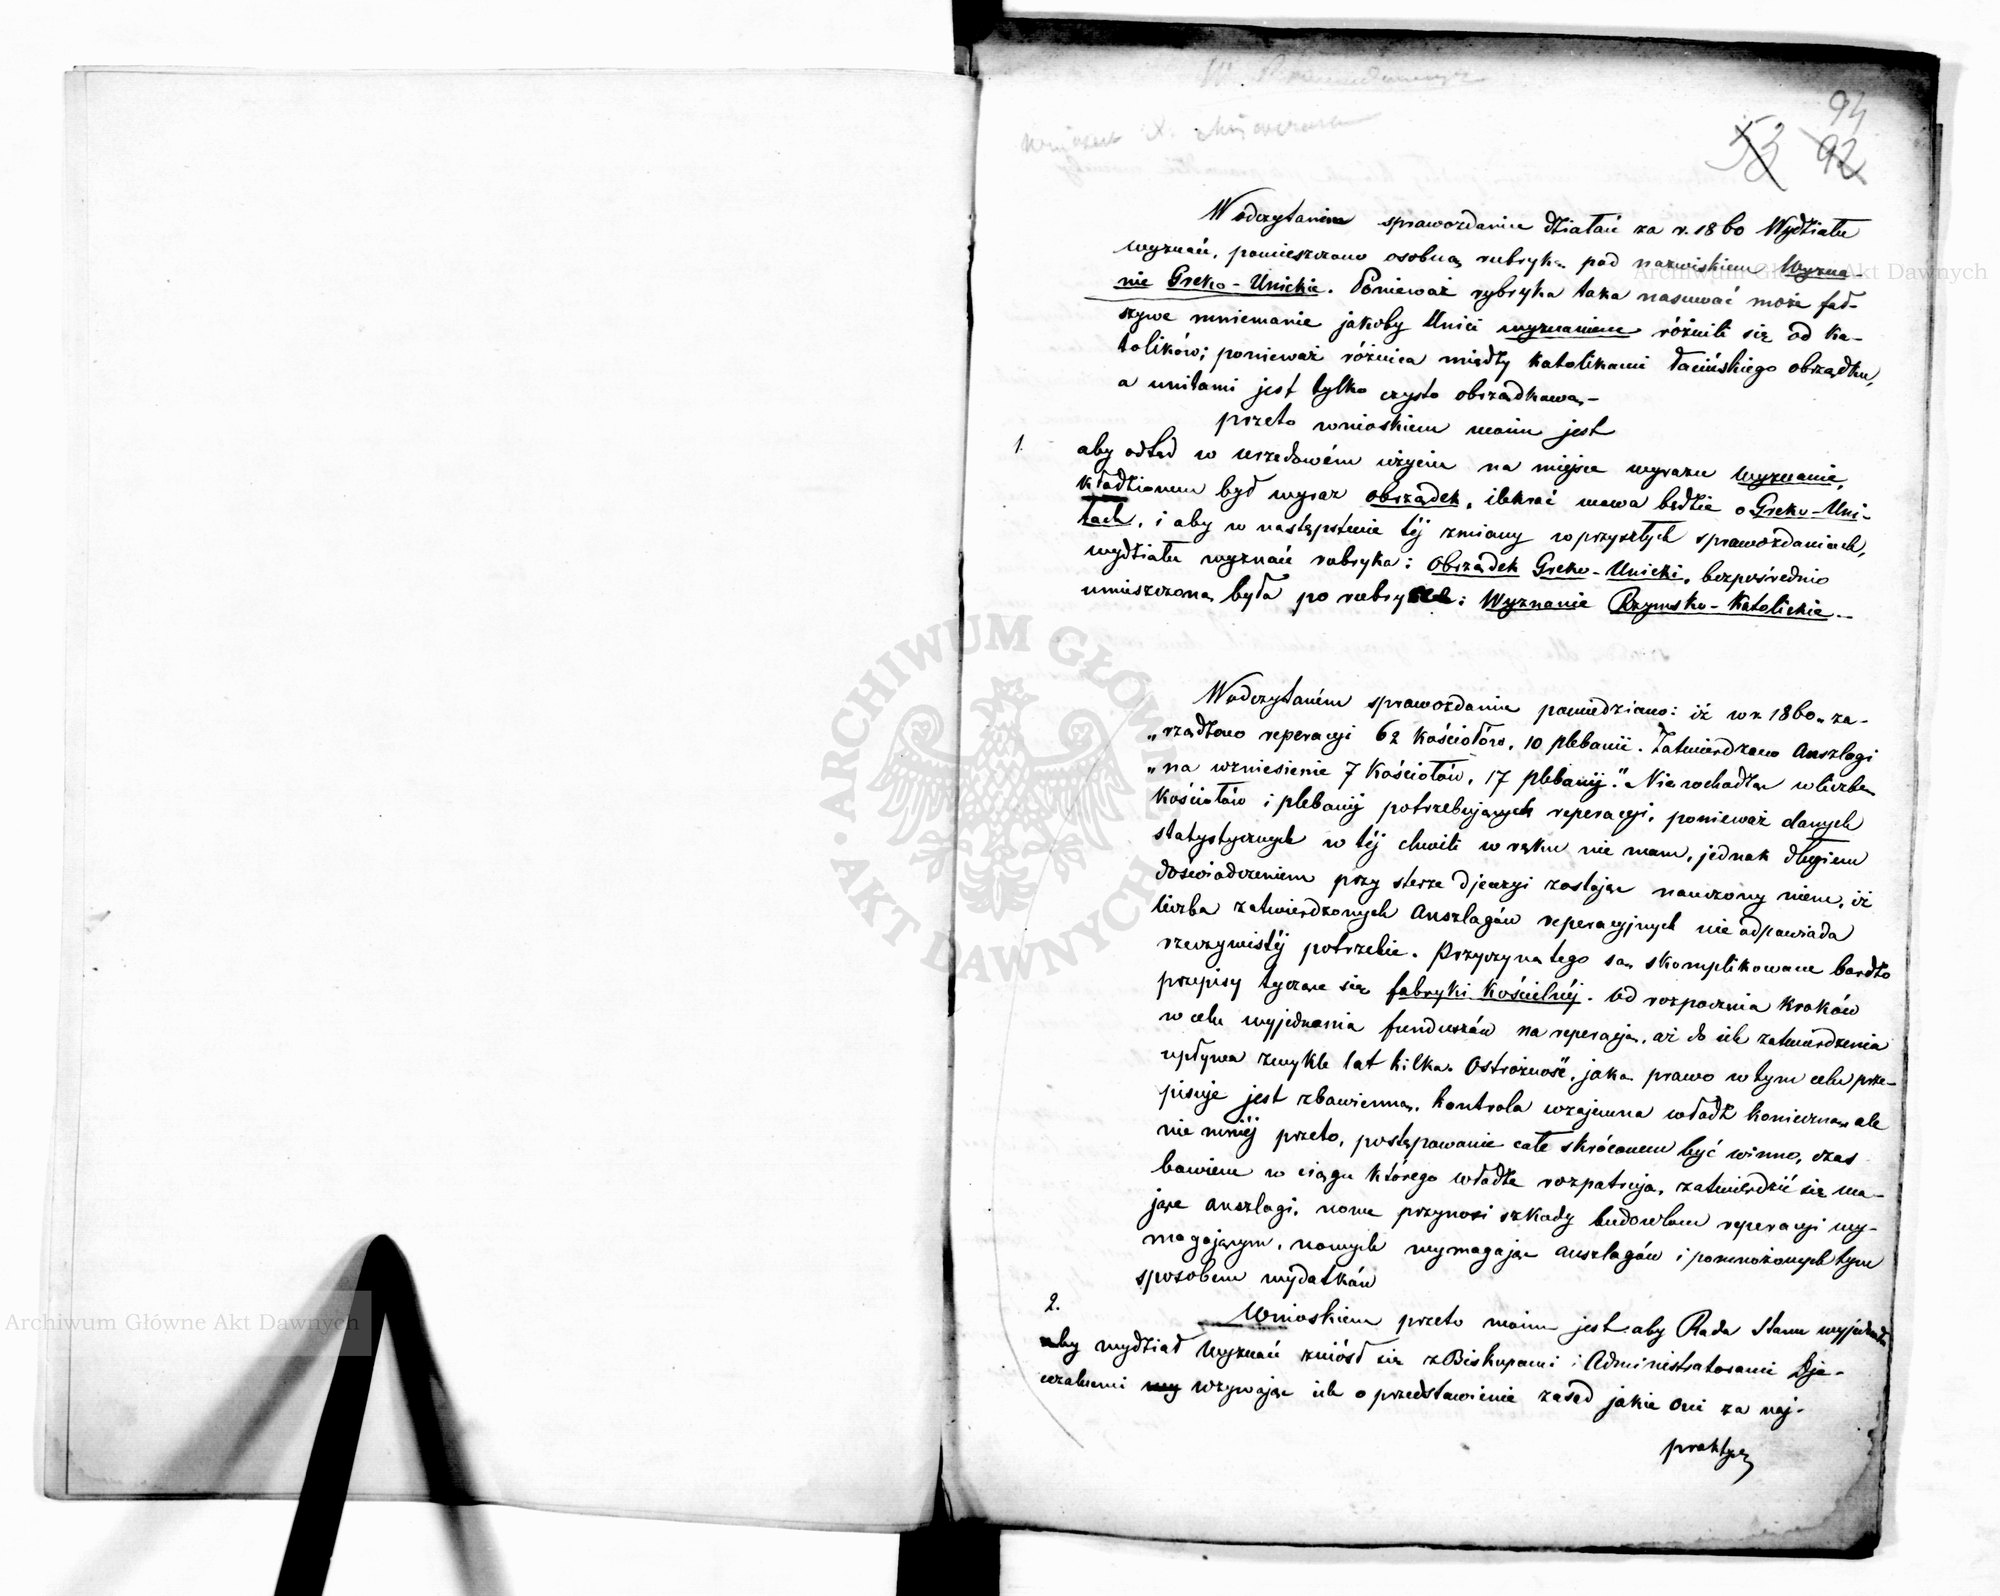 94
53 92
W odczytaniu sprawozdaniu działań za r. 1860 Wydziału
wyznań, pomieszczono osobną rubrykę pod nazwiskiem Wyzna-
nie Greko-Unickie. Ponieważ rybryka taka nasuwać może fał-
szywe mniemanie jakoby Unici wyznaniem różnili się od Ka-
tolików; ponieważ różnica między Katolikami łacińskiego obrządku,
a unitami jest tylko czysto obrządkową,-
przeto wnioskiem moim jest
1. aby odtąd w urzędowém użyciu na miejsce wyrazu Wyznanie,
kładzionem był wyraz obrządek, ilekroć mowa będzie o Greko-Uni-
tach, i aby w następstwie téj zmiany w przyszłych sprawozdaniach,
wydziału wyznań rubryka: Obrządek Greko-Unicki, bezpośrednio
umieszczoną była po rubryce: Wyznanie Rzymsko-Katolickie.-
W odczytaném sprawozdaniu powiedziano: iż w r. 1860 „za-
„rządzono reperacyi 62 Kościołów, 10 plebanii. Zatwierdzono Anszlagi
„na wzniesienie 7 Kościołów, 17 plebanij." Nie wchodzę w liczbę
Kościołów i plebanij potrzebujących reperacyi, ponieważ danych
statystycznych w téj chwili w ręku nie mam, jednak długiem
doświadczeniem przy sterze Djecezyi zostając nauczony wiem, iż
liczba zatwierdzonych Anszlagów reperacyjnych nie odpowiada
rzeczywistéj potrzebie. Przyczyną tego są skomplikowane bardzo
przepisy tyczące się fabryki Kościelnéj. Od rozpoczęcia Kroków
w celu wyjednania funduszów na reperacją, aż do ich zatwierdzenia
upływa zwykle lat kilka. Ostrożność, jaką prawo w tym celu prze-
pisuje jest zbawienną, kontrola wzajemna władz konieczną, ale
nie mniéj przeto, postępowanie całe skróconem być winno, czas
bowiem w ciągu którego władze rozpatrują, zatwierdzić się ma-
jące anszlagi, nowe przynosi szkody budowlom reperacyi wy-
magającym, nowych wymagając anszlagów i pomnożonych tym
sposobem wydatków
2. Wnioskiem przeto moim jest aby Rada Stanu wyjednała
aby wydział Wyznań zniósł się z Biskupami i Administratorami Dje-
cezalnemi wzywając ich o przedstawienie zasad jakie oni za naj-
praktycz
ARCHIWUM GŁÓWNE AKT DAWNYCH
Archiwum Główne Akt Dawnych
Archiwum Główne Akt Dawnych